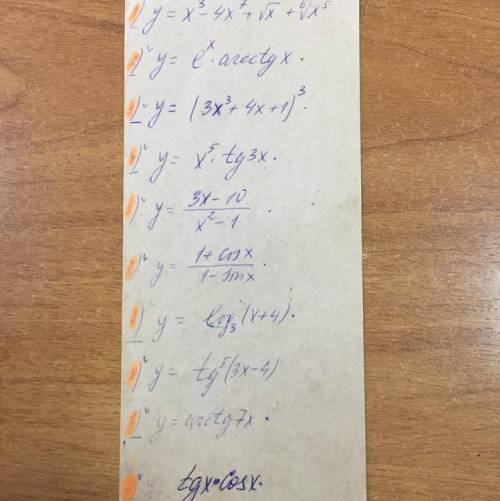 1) y = x³ - 4x⁷ + √x + ⁶√x⁵
2) y = eˣ · arcctgx.
3) y = (3x³ + 4x + 1)³.
4) y = x⁵ · tg3x.
5) y = (3x - 10)/(x² - 1).
6) y = (1 + cosx)/(1 - sinx).
7) y = log₃(x+4).
8) y = tg⁵(3x-4)
9) y = arctg7x.
tgx · cosx.